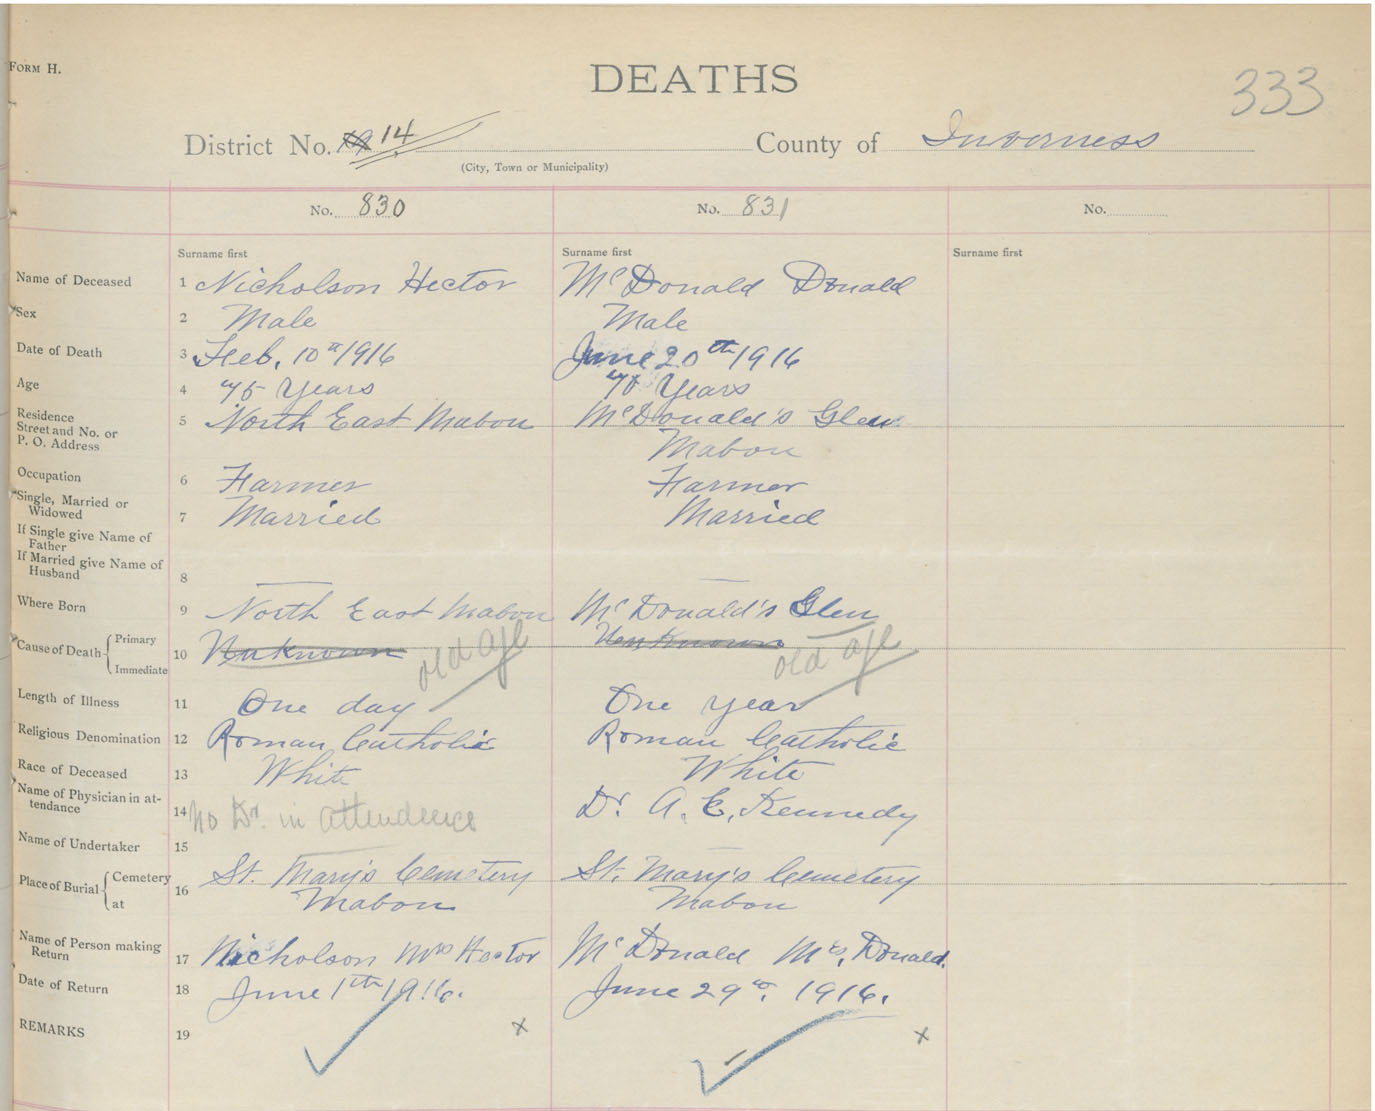 FORM H.
DEATHS
333
District No. 14
County of Inverness
(City, Town or Municipality)
No. 830
No. 831
No.
Surname first
Surname first
Surname first
Name of Deceased 1 Nicholson Hector McDonald Donald
Sex 2 Male Male
Date of Death 3 Feb. 10th 1916 June 20th 1916
Age 4 75 Years Years
Residence
Street and No. or
P. O. Address
5 North East Mabou McDonald's Glen
Mabou
Occupation 6 Farmer Farmer
Single, Married or
Widowed
7 Married Married
If Single give Name of
Father
If Married give Name of
Husband
8
Where Born 9 North East Mabou McDonald's Glen
Cause of Death Primary
Immediate
10 Unknown old age Unknown old age
Length of Illness 11 One day One year
Religious Denomination 12 Roman Catholic Roman Catholic
Race of Deceased 13 White White
Name of Physician in at-
tendance
14 No Dr. in attendence Dr. A. E. Kennedy
Name of Undertaker 15
Place of Burial Cemetery
at
16 St. Mary's Cemetery St. Mary's Cemetery
Mabou Mabou
Name of Person making
Return
17 Nicholson Mrs Hector McDonald Mrs. Donald.
Date of Return 18 June 1th 1916. June 29th, 1916.
REMARKS 19 x x